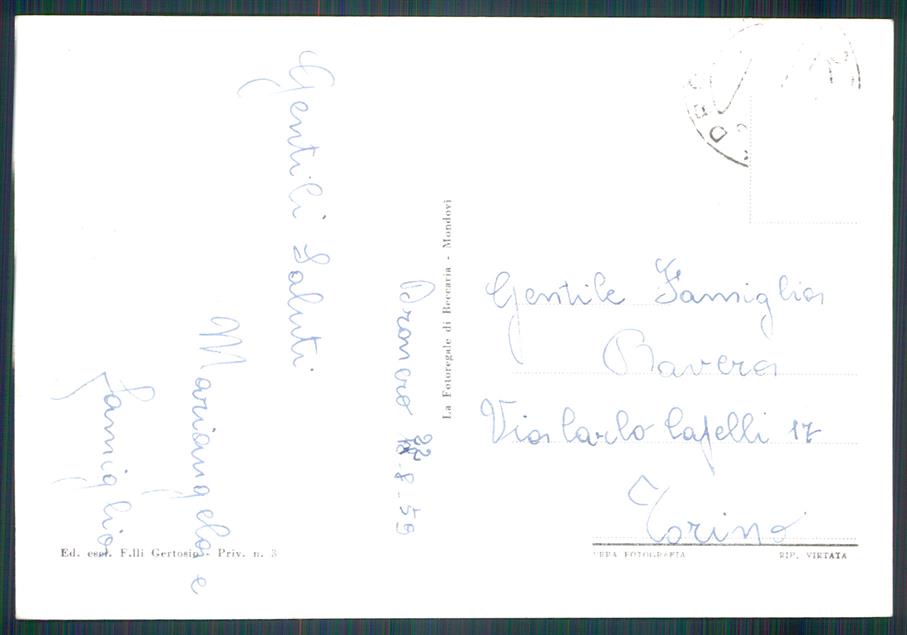 Gentili Saluti
Mariangela e
famiglia
Dronero 22-8-59
La Fotoregale di Beccaria - Mondovì
Gentile Famiglia
Ravera
Via Carlo Capelli 17
Torino
Ed. escl. F.lli Gertosio - Priv. n. 3
VERA FOTOGRAFIA
RIP. VIETATA